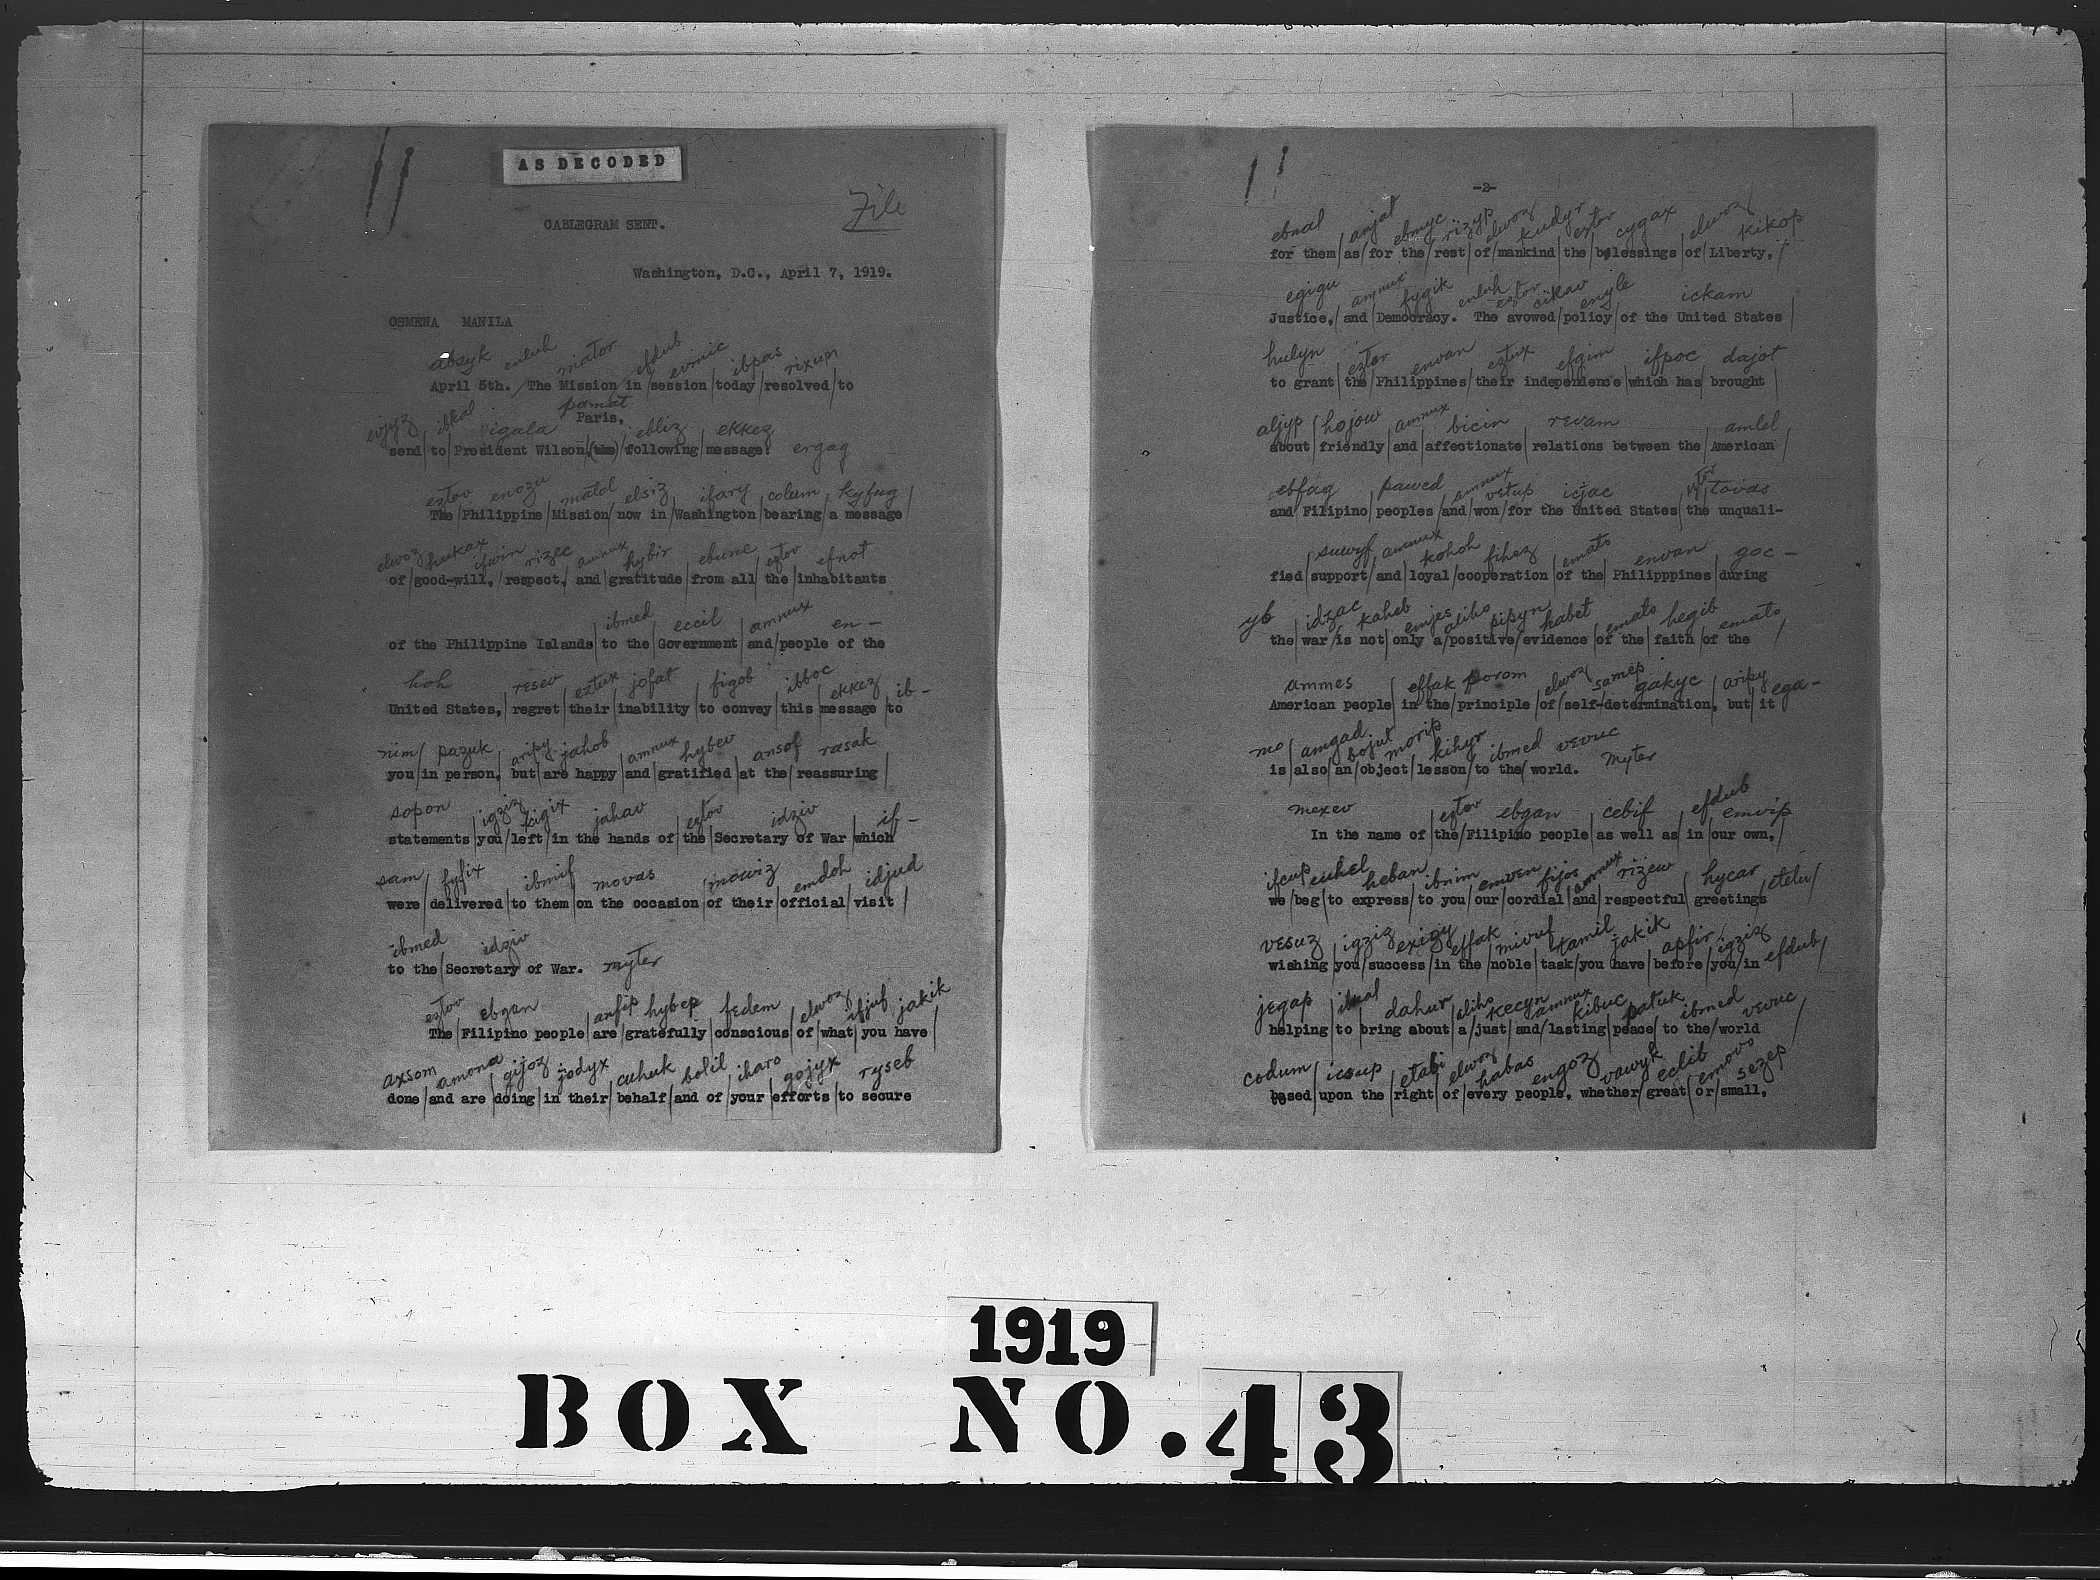 AS DECODED
File
CABLEGRAM SENT.
Washington, D.C., April 7, 1919.
OSMENA MANILA
abzyk enluh miator efdub evonic ibpas rixum
April 5th. / The Mission in / session / today / resolved / to
pamat
Paris,
evjyz ibkal igala ebliz ekkez
send / to / President Wilson / (the) / following / message: ergag
eztov enozu matol elsiz ifary colum kyfug
The / Philippine / Mission / now in / Washington / bearing / a message /
elwoz hukax ifwin rizec amnux hybir ebune eztov efnot
of / good-will, / respect, / and / gratitude / from all / the / inhabitants
ibmed eccil amnux en-
of the Philippine Islands / to the / Government / and / people of the
hoh resev eztux jofat figob ibboc ekkez ib-
United States, / regret / their / inability / to convey / this / message / to
nim / pazuk aripy jahob amnux hybev ansof rasak
you / in person, / but are happy / and / gratified / at the / reassuring /
sopon igziz kigix jahav eztov idziv if-
statements / you / left / in the hands of / the / Secretary of War / which
sam / fyfix ibmif movas mowiz emdoh idjud
were / delivered / to them / on the occasion / of their / official / visit /
ibmed idziv
to the / Secretary of War. myter
eztov ebgan anfip hybep fedem elwoz ifjuf jakik
The / Filipino people / are / gratefully / conscious / of / what / you have /
axsom amona gijoz jodyx cuhuk bolil iharo gojyx ryseb
done / and are / doing / in their / behalf / and of / your / efforts / to secure
-2-
ebnal anjat ebmyc rizyp elwoz kudyr eztov cygax elwoz kikop
for them / as / for the / rest / of / mankind / the / bolessings / of / Liberty, /
egigu amnux fygik enluh eztov cikav engle ickam
Justice, / and / Democracy. The avowed / policy / of the United States /
hulyn eztov enwan eztux efgim ifpoc dajot
to grant / the / Philippines / their independense / which has / brought /
aljyp / hojow amnux bicin revam amlel
about / friendly / and / affectionate / relations between the / American /
ebfag pawed amnux vetup icjac tovas
and / Filipino / peoples / and / won / for the United States / the unquali-
suwyf amnux kohoh fihez emato enwan goc-
fied / support / and / loyal / cooperation / of the / Philipppines / during
yb idzac kaheb emjes aliho pipyn habet emato hegib emato
the / war / is not / only / a / positive / evidence / of the / faith / of the /
ammes effak porom elwoz samep gakyc aripy ega-
American people / in the / principle / of / self-determination, / but / it
mo / amgad bojut morip kihyr ibmed vevuc
is / also / an / object / lesson / to the / world. myter
mexev eztov ebgan cebif efdub emvip
In the name of / the / Filipino people / as well as / in / our own, /
ifcup euhel heban ibnim emven fijos amnux rizew hycar etelu /
we / beg / to express / to you / our / cordial / and / respectful / greetings
vesuz igziz exigy effak mivuf tamil jakik apfir igziz efdub /
wishing / you / success / in the / noble / task / you have / before / you / in
jegap dahur aliho kecyn amnux kibuc patuk ibmed vevuc /
helping / to / bring about / a / just / and / lasting / peace / to the / world
codum / icsup etabi elwoz habas engoz vawyk eclib emovo sezep
based / upon the / right / of / every people, / whether / great / or / small,
1919
BOX NO.43